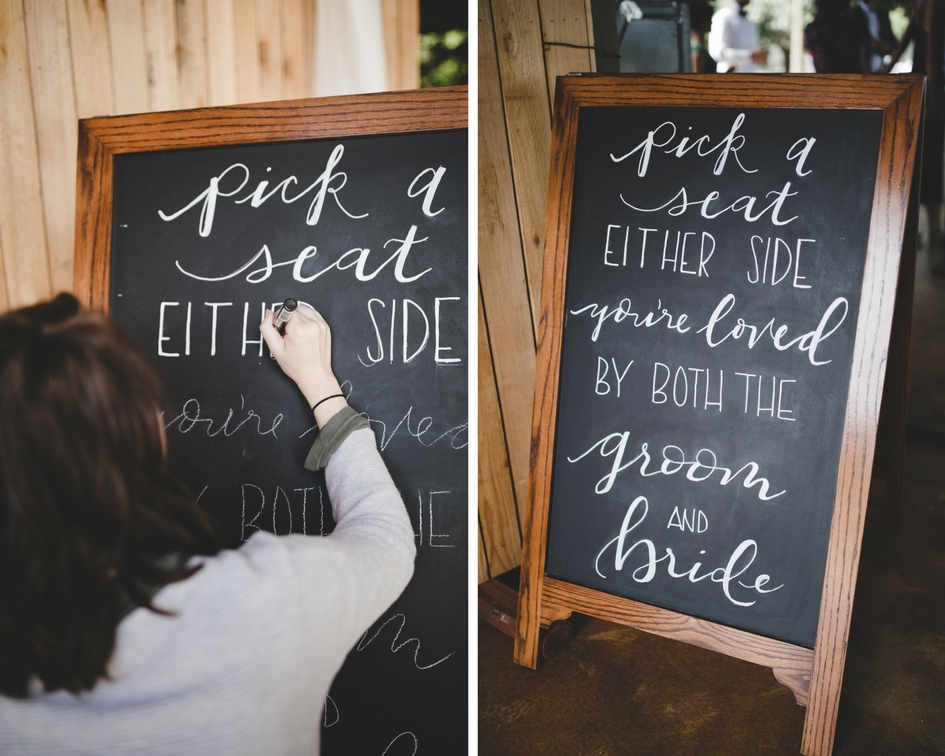 pick a
seat
EITHER SIDE
you're loved
BOTH THE
pick a
seat
EITHER SIDE
you're loved
BY BOTH THE
groom
AND
bride